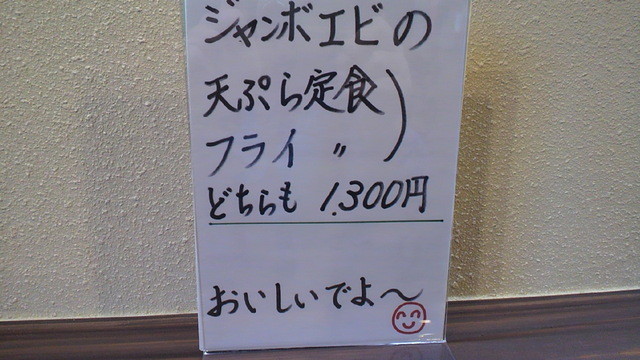 ジャンボエビの
天ぷら定食)
フライ 〃
どちらも 1.300円
おいしいでよ〜